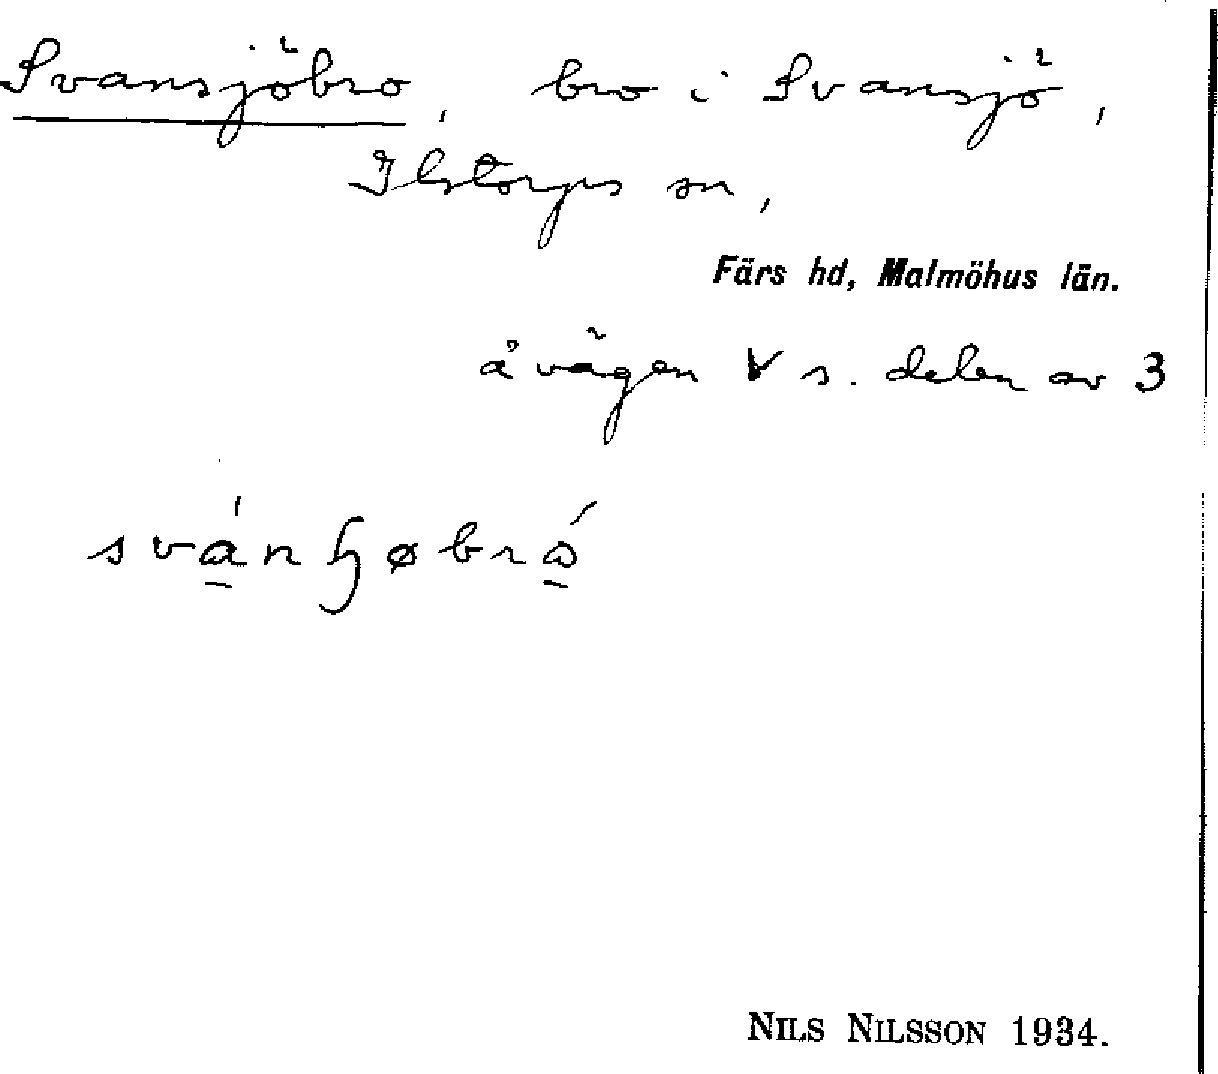 Svansjöbro, bro i Svansjö,
Ilstorps sn,
Färs hd, Malmöhus län.
å vägen V s. delen av 3
NILS NILSSON 1934.